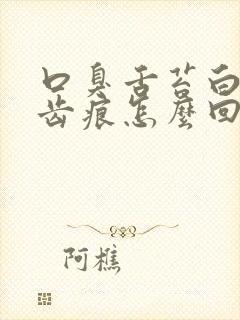 口臭舌苔白
齿痕怎麼回
阿樵